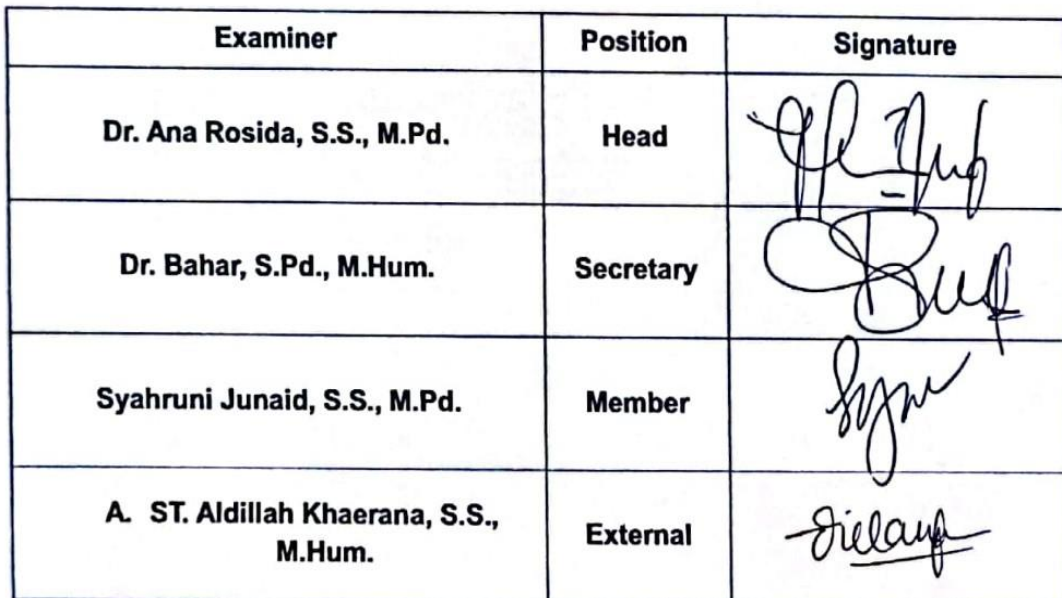 Examiner Position Signature
Dr. Ana Rosida, S.S., M.Pd. Head
Dr. Bahar, S.Pd., M.Hum. Secretary
Syahruni Junaid, S.S., M.Pd. Member
A. ST. Aldillah Khaerana, S.S., External
M.Hum.